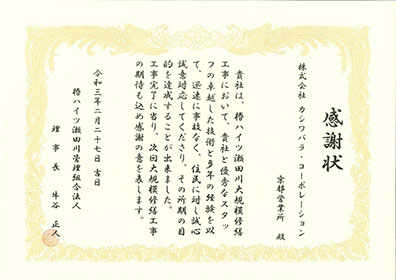 感謝状
株式会社 カシワバラ・コーポレーション
京都営業所 殿
貴社は、椿ハイツ瀬田川大規模修繕
工事において、貴社と優秀なスタッ
フの卓越した技術と多年の経験を以
て、迅速に事故なく、住民に対し誠心
誠意対応してくださり、その所期の目
的を達成することが出来ました。
工事完了に当り、次回大規模修繕工事
の期待も込め感謝の意を表します。
令和三年二月二十七日 吉日
椿ハイツ瀬田川管理組合法人
理事長 正人